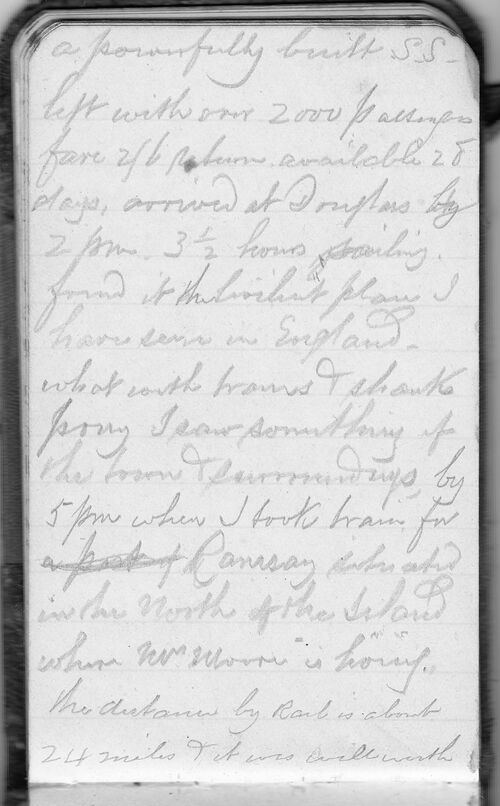 a powerfully built S.S.
left with over 2000 passengers
fare 2/6 return available 28
days, arrived at Douglas by
2 pm. 3½ hours sailing.
found it the liveliest place I
have seen in England.
what with trams & shank
pony I saw something of
the town & surroundings, by
5 pm when I took train for
a port of Ramsay situated
in the North of the Island
where Mrs Moore is living.
The distance by Rail is about
24 miles & it was well worth